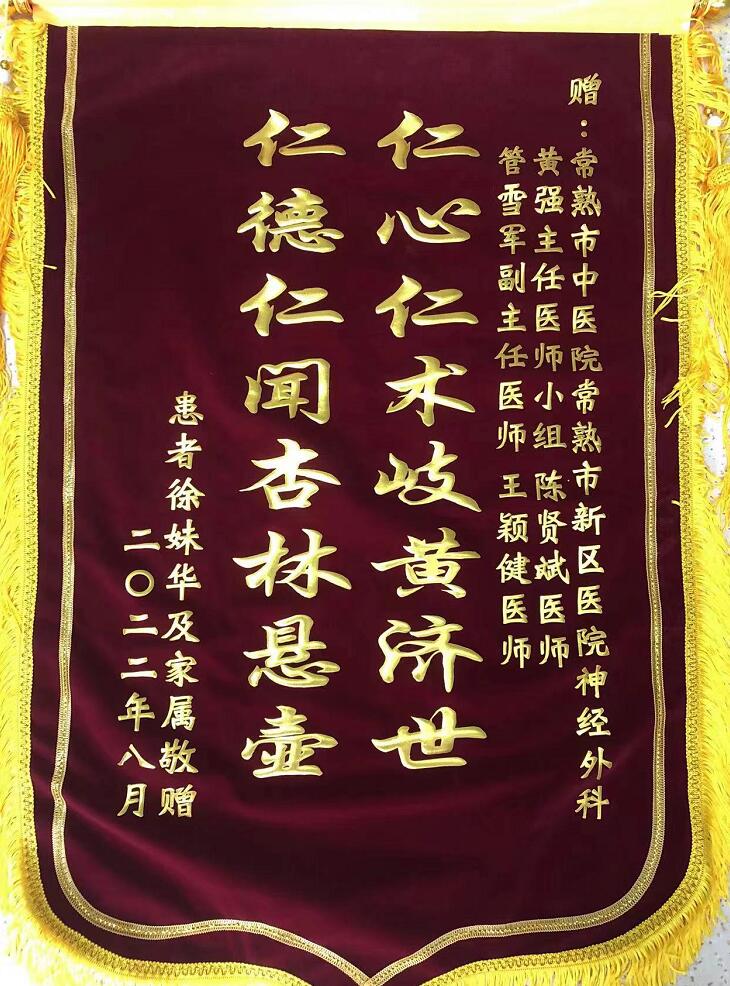 赠：常熟市中医院常熟市新区医院神经外科
黄强主任医师小组 陈贤斌医师
管雪军副主任医师 王颖健医师
仁心仁术岐黄济世
仁德仁闻杏林悬壶
患者徐妹华及家属敬赠
二〇二二年八月